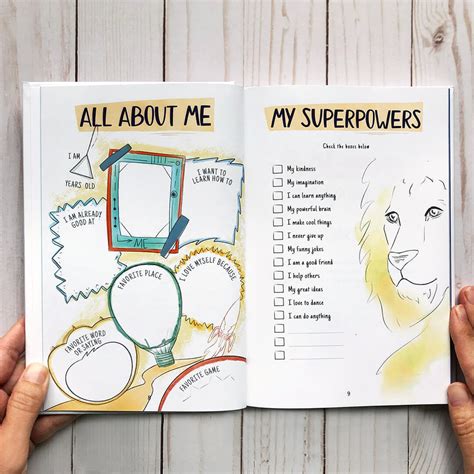 ALL ABOUT ME
I AM
YEARS OLD
I WANT TO
LEARN HOW TO
I AM ALREADY
GOOD AT
ME
FAVORITE PLACE
I LOVE MYSELF BECAUSE
FAVORITE WORD
OR SAYING
FAVORITE GAME
MY SUPERPOWERS
Check the boxes below
My kindness
My imagination
I can learn anything
My powerful brain
I make cool things
I never give up
My funny jokes
I am a good friend
I help others
My great ideas
I love to dance
I can do anything
9